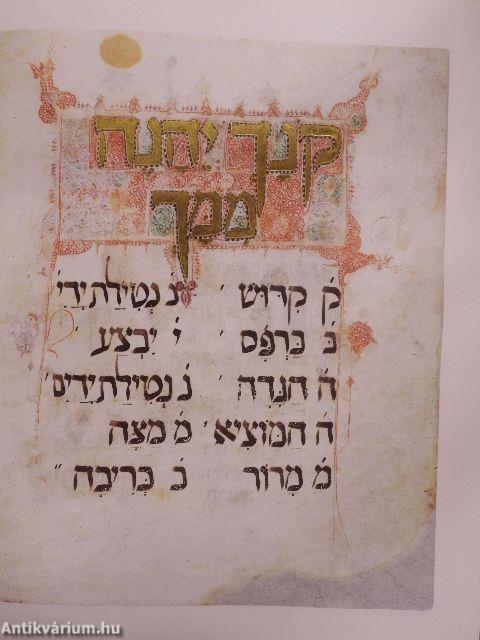 קנך יהנה
ממך
ק֗ קדוש ׳ נ֗ נטילת ידי֗
כ֗ כרפס ׳ י֗ יבצע ׳
ה֗ הגדה ׳ נ֗ נטילת ידים ׳
ה֗ המוציא ׳ מ֗ מצה
מ֗ מרור כ֗ כריכה ״
Antikvárium.hu